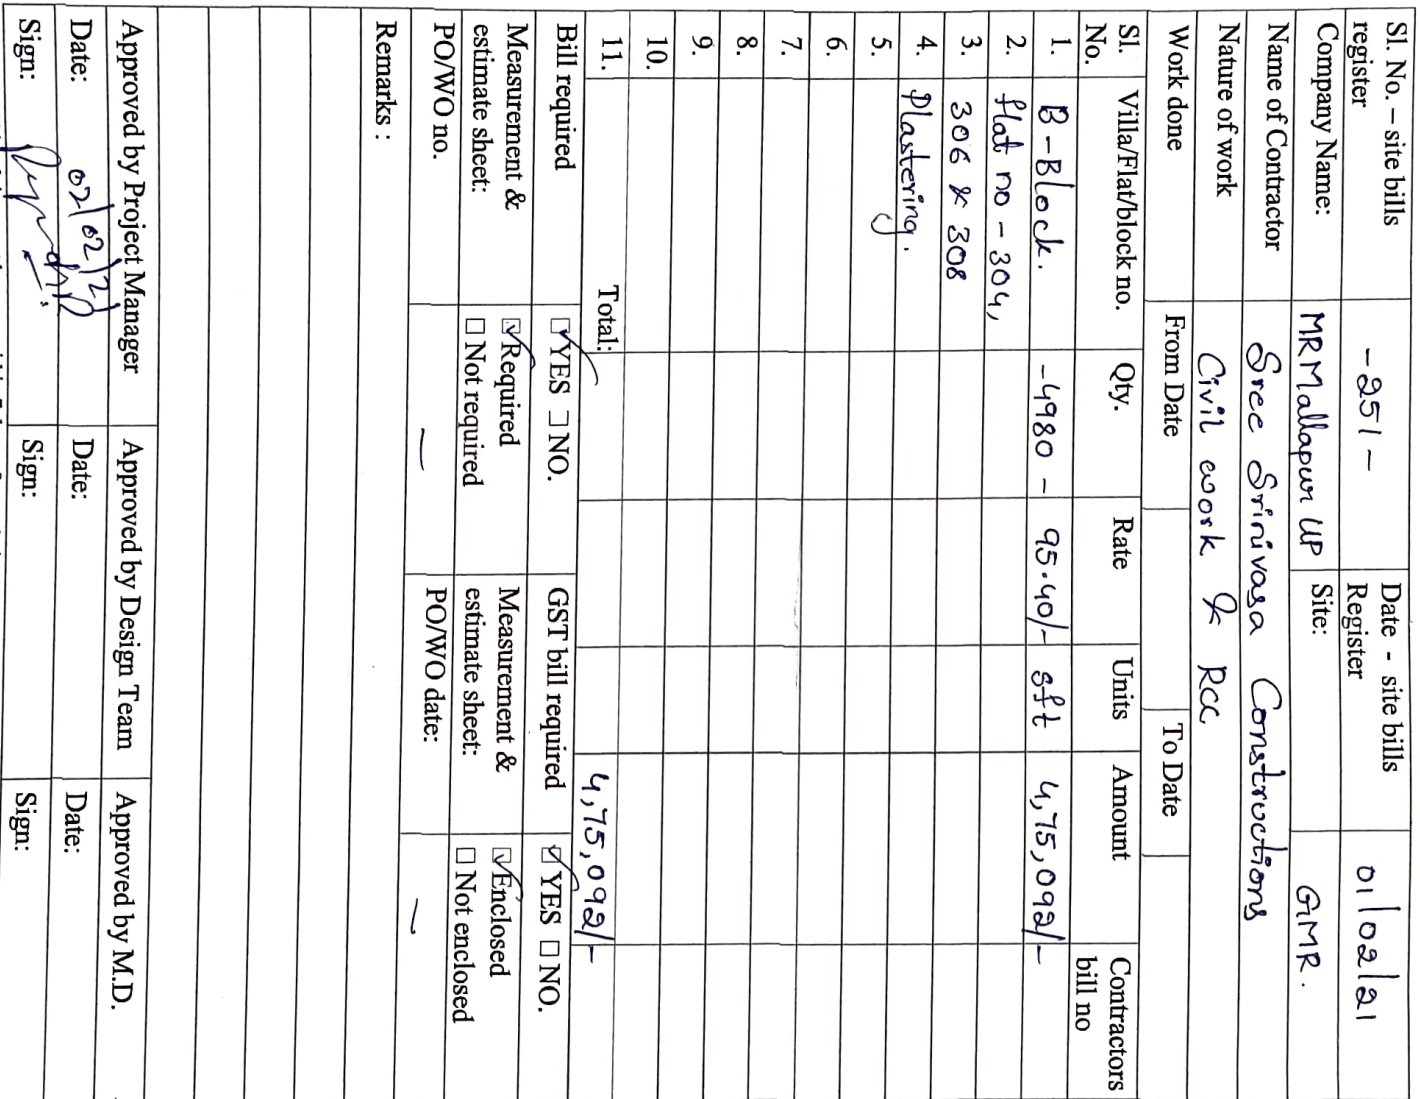 Sl. No. – site bills register -251- Date - site bills Register 01/02/21
Company Name: MR Mallapur LLP Site: GMR.
Name of Contractor Sree Srinivasa Constructions
Nature of work Civil work & RCC
Work done From Date To Date
Sl. No. Villa/Flat/block no. Qty. Rate Units Amount Contractors bill no
1. B-Block. -4980- 95.40/- sft 4,75,092/-
2. flat no - 304,
3. 306 & 308
4. Plastering.
5.
6.
7.
8.
9.
10.
11. Total: 4,75,092/-
Bill required ☑ YES ☐ NO. GST bill required ☑ YES ☐ NO.
Measurement & estimate sheet: ☑ Required ☐ Not required Measurement & estimate sheet: ☑ Enclosed ☐ Not enclosed
PO/WO no. — PO/WO date: —
Remarks :
Approved by Project Manager Approved by Design Team Approved by M.D.
Date: 02/02/21 Date: Date:
Sign: Sign: Sign: